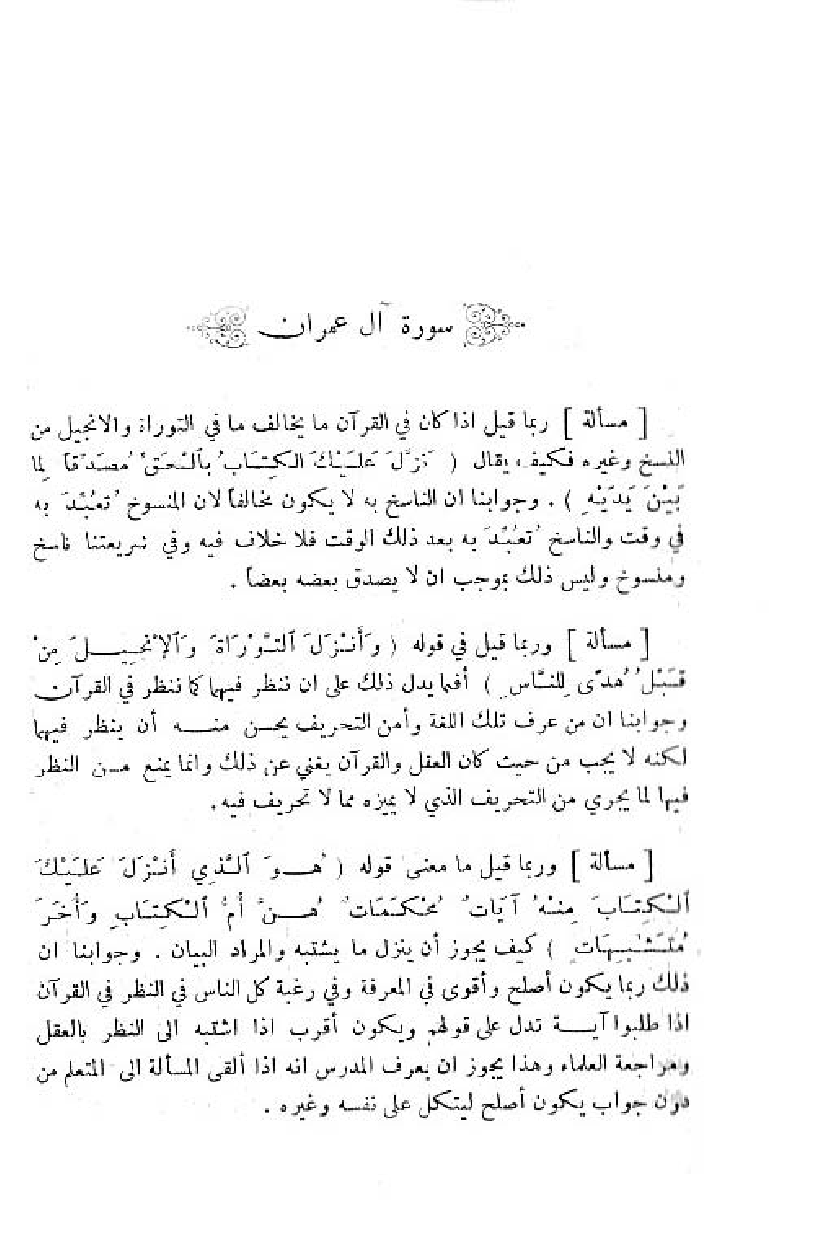 سورة آل عمران
[ مسألة ] ربما قيل اذا كان في القرآن ما يخالف ما في التوراة والانجيل من
النسخ وغيره فكيف يقال ( نَزَّلَ عَلَيْكَ الكِتَابَ بِالْحَقِّ مُصَدِّقاً لِمَا
بَيْنَ يَدَيْهِ ) . وجوابنا ان الناسخ به لا يكون مخالفاً لان المنسوخ تُعُبِّدَ به
في وقت والناسخ تُعُبِّدَ به بعد ذلك الوقت فلا خلاف فيه وفي شريعتنا ناسخ
ومنسوخ وليس ذلك بموجب ان لا يصدق بعضه بعضاً .
[ مسألة ] وربما قيل في قوله ( وَأَنْزَلَ التَّوْرَاةَ وَالإِنْجِيلَ مِنْ
قَبْلُ هُدًى لِلنَّاسِ ) أفما يدل ذلك على ان ننظر فيهما كما ننظر في القرآن
وجوابنا ان من عرف تلك اللغة وأمن التحريف يحسن منه أن ينظر فيهما
لكنه لا يجب من حيث كان العقل والقرآن يغني عن ذلك وانما يمنع من النظر
فيها لما يجري من التحريف الذي لا يميزه مما لا تحريف فيه.
[ مسألة ] وربما قيل ما معنى قوله ( هُوَ الَّذِي أَنْزَلَ عَلَيْكَ
الْكِتَابَ مِنْهُ آيَاتٌ مُحْكَمَاتٌ هُنَّ أُمُّ الْكِتَابِ وَأُخَرُ
مُتَشَابِهَاتٌ ) كيف يجوز أن ينزل ما يشتبه والمراد البيان . وجوابنا ان
ذلك ربما يكون أصلح وأقوى في المعرفة وفي رغبة كل الناس في النظر في القرآن
اذا طلبوا آية تدل على قولهم ويكون أقرب اذا اشتبه الى النظر بالعقل
ومراجعة العلماء وهذا يجوز ان يعرف المدرس انه اذا ألقى المسألة الى المتعلم من
دون جواب يكون أصلح ليتكل على نفسه وغيره .